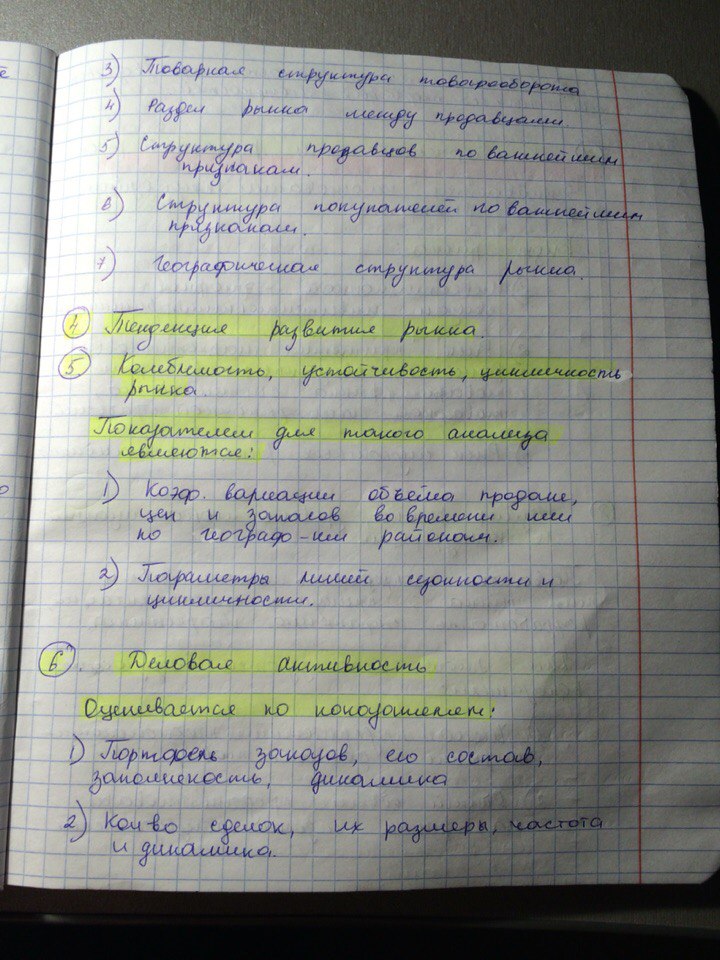 3) Товарная структура товарооборота
4) Раздел рынка между продавцами.
5) Структура продавцов по важнейшим
признакам.
6) Структура покупателей по важнейшим
признакам.
7) Географическая структура рынка.
4 Тенденция развития рынка.
5 Колеблемость, устойчивость, цикличность
рынка.
Показателем для такого анализа
являются:
1) Коэф. вариации объёма продаж,
цен и запасов во времени или
по географ-ким районам.
2) Параметры линий сезонности и
цикличности.
6. Деловая активность
Оценивается по показателям:
1) Портфель заказов, его состав,
заполненость, динамика
2) Кол-во сделок, их размеры, частота
и динамика.